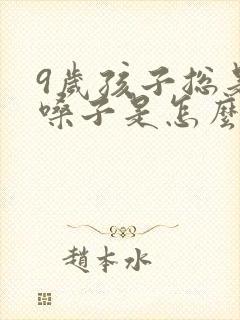 9歲孩子總是
嗓子是怎麼
趙本水